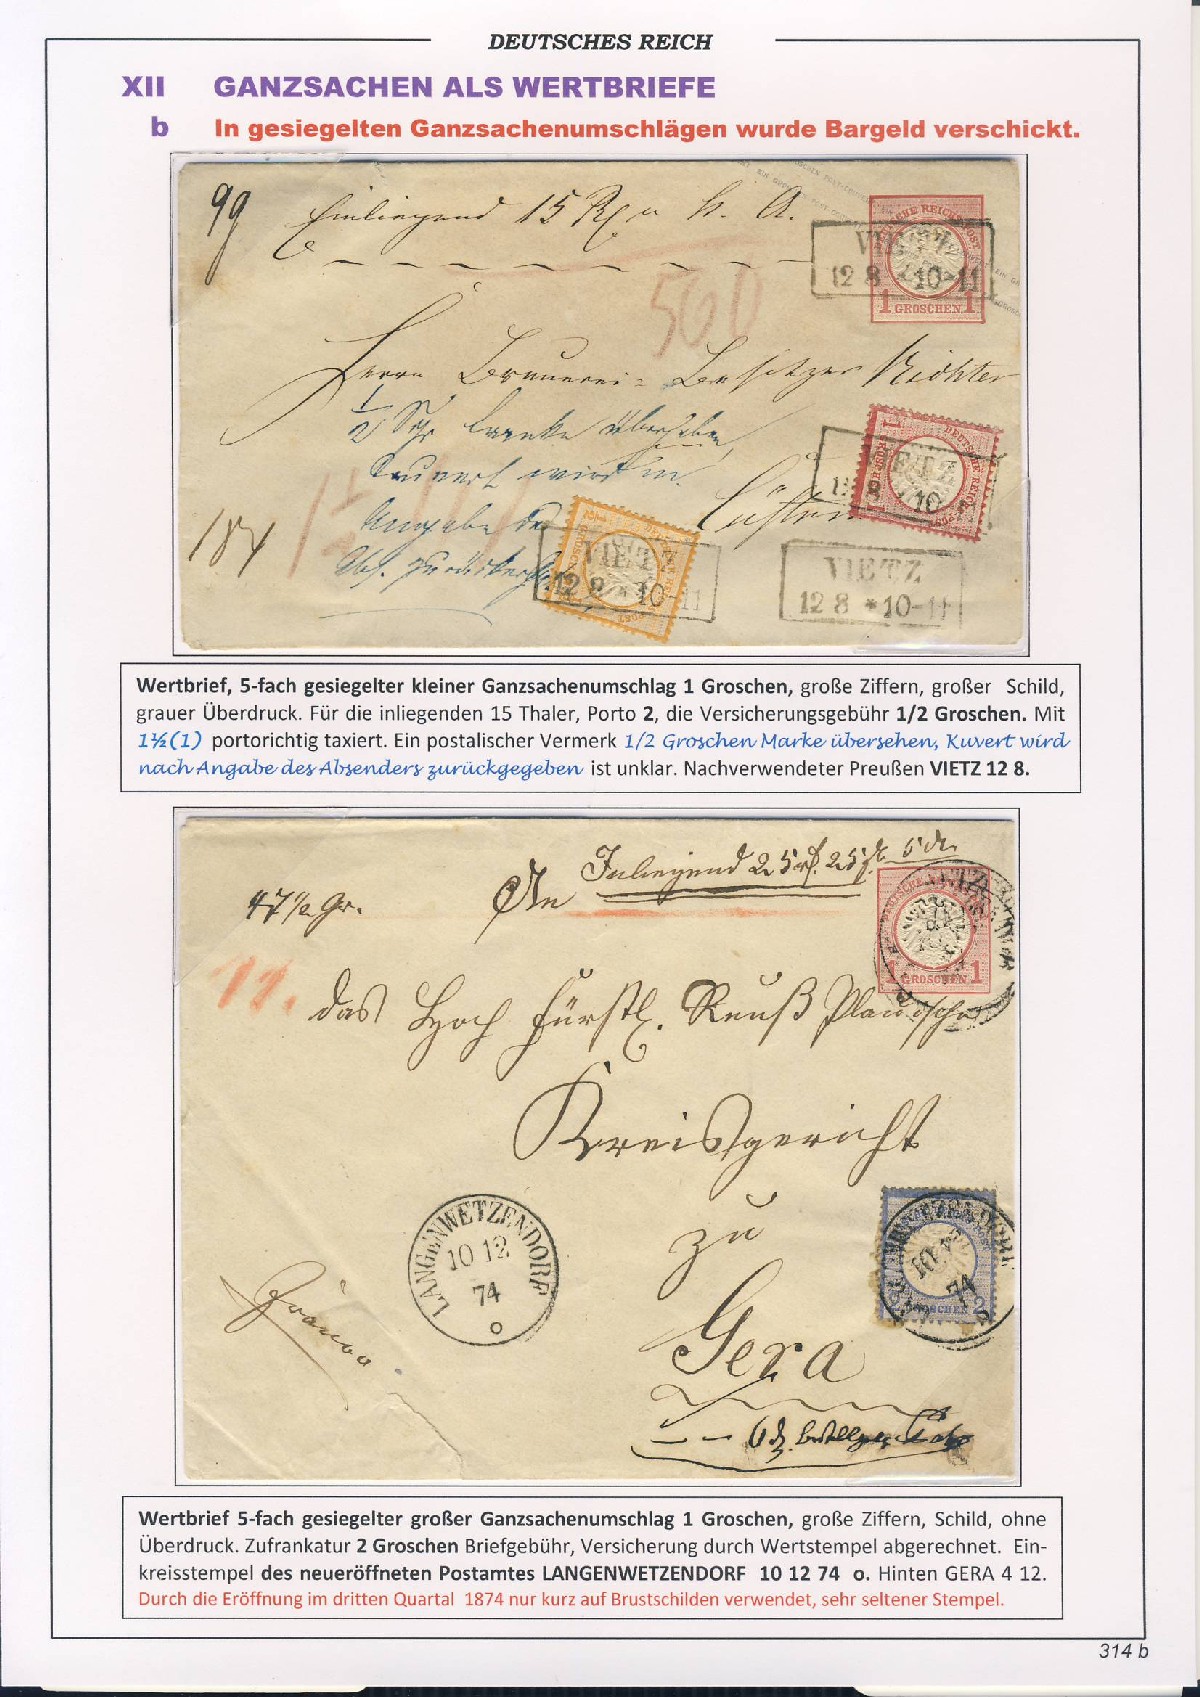 DEUTSCHES REICH
XII GANZSACHEN ALS WERTBRIEFE
b In gesiegelten Ganzsachenumschlägen wurde Bargeld verschickt.
99
Einliegend 15
DEUTSCHE REICHSPOST
1 GROSCHEN 1
VIETZ
12 8 * 10-11
560
Herrn Brauerei-Besitzer Richter
1/2 Sgr Marke übersehen,
Kuvert wird n.
Angabe des
Abs. zurückgeg
Cüstrin
184
1½
DEUTSCHE REICHS POST
VIETZ
12 8 * 10-11
VIETZ
12 8 * 10-11
VIETZ
12 8 * 10-11
Wertbrief, 5-fach gesiegelter kleiner Ganzsachenumschlag 1 Groschen, große Ziffern, großer Schild,
grauer Überdruck. Für die inliegenden 15 Thaler, Porto 2, die Versicherungsgebühr 1/2 Groschen. Mit
1½(1) portorichtig taxiert. Ein postalischer Vermerk 1/2 Groschen Marke übersehen, Kuvert wird
nach Angabe des Absenders zurückgegeben ist unklar. Nachverwendeter Preußen VIETZ 12 8.
Inliegend 25 25 5
47 ½ Gr.
An
1 GROSCHEN 1
11.
das Hoch Fürstl. Reuß Plauische
Kreisgericht
zu
Gera
LANGENWETZENDORF
10 12
74
o
GROSCHEN 2
74
Wertbrief 5-fach gesiegelter großer Ganzsachenumschlag 1 Groschen, große Ziffern, Schild, ohne
Überdruck. Zufrankatur 2 Groschen Briefgebühr, Versicherung durch Wertstempel abgerechnet. Ein-
kreisstempel des neueröffneten Postamtes LANGENWETZENDORF 10 12 74 o. Hinten GERA 4 12.
Durch die Eröffnung im dritten Quartal 1874 nur kurz auf Brustschilden verwendet, sehr seltener Stempel.
314 b